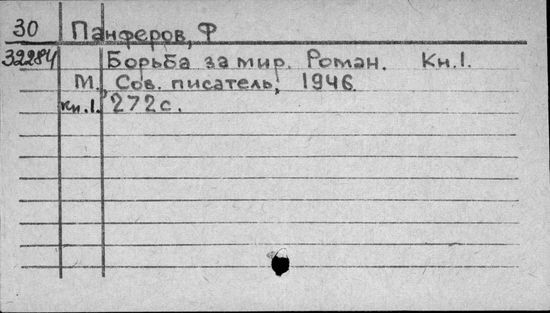 30 Панферов, Ф
32284 Борьба за мир. Роман. Кн.1.
М., Сов. писатель, 1946.
кн.1. 272с.